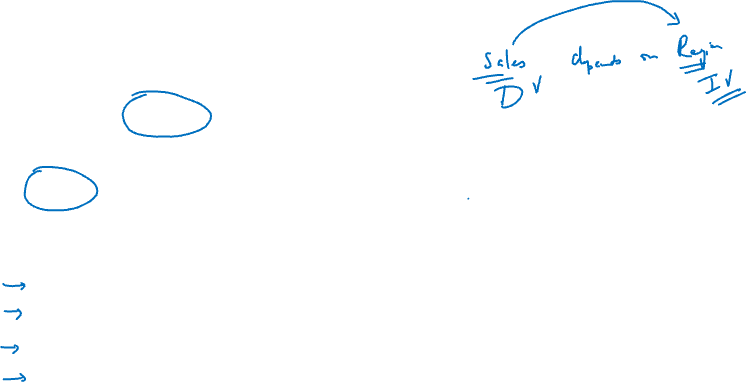 Sales depends on Region
DV IV